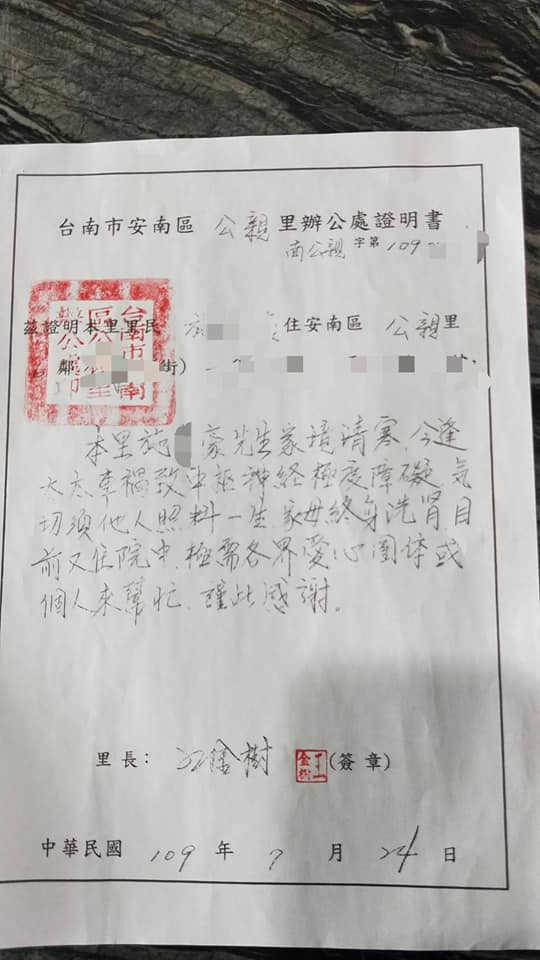 台南市安南區 公親 里辦公處證明書
南公親 字第 109
茲證明本里里民 住安南區 公親里
鄰 街)
本里施 豪先生家境清寒,今逢
太太車禍致中樞神経極度障礙気
切須他人照料一生,家母終身洗腎目
前又住院中,極需各界愛心團体或
個人來幫忙,謹此感謝。
里長: 江金樹 江金樹 (簽章)
中華民國 109 年 7 月 24 日